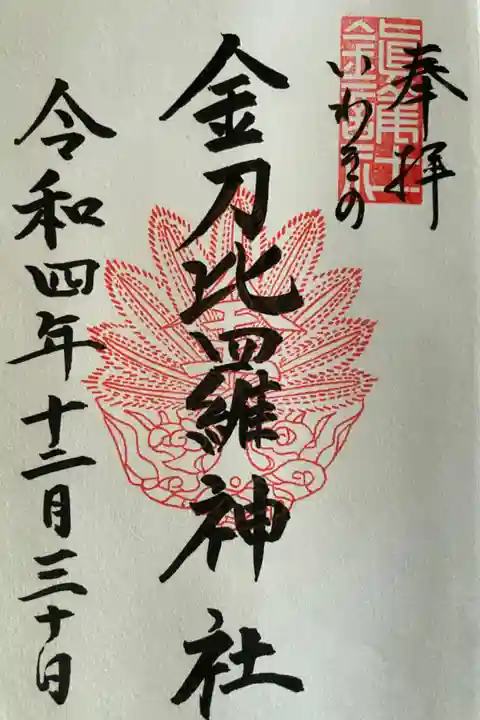 奉拝
いわその
金刀比羅神社
令和四年十二月三十日